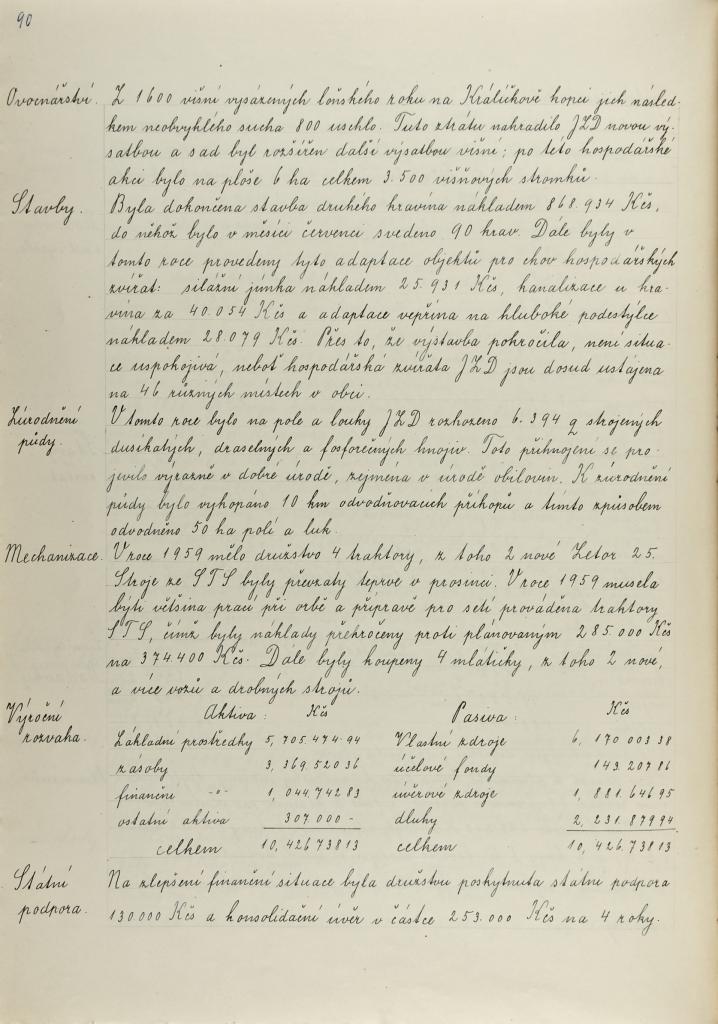 90
Ovocnářství. Z 1600 višní vysázených loňského roku na Králíčkově kopci jich násled-
kem neobvyklého sucha 800 uschlo. Tuto ztrátu nahradilo JZD novou vý-
satbou a sad byl rozšířen další výsatbou višní; po této hospodářské
akci bylo na ploše 6 ha celkem 3.500 višňových stromků.
Stavby. Byla dokončena stavba druhého kravína nákladem 868.934 Kčs,
do něhož bylo v měsíci červenci svedeno 90 krav. Dále byly v
tomto roce provedeny tyto adaptace objektů pro chov hospodářských
zvířat: silážní jímka nákladem 25.931 Kčs, kanalizace u kra-
vína za 40.054 Kčs a adaptace vepřína na hluboké podestýlce
nákladem 28.079 Kčs. Přes to, že výstavba pokročila, není situa-
ce uspokojivá, neboť hospodářská zvířata JZD jsou dosud ustájena
na 46 různých místech v obci.
Zúrodnění V tomto roce bylo na pole a louky JZD rozhozeno 6.394 q strojených
půdy. dusíkatých, draselných a fosforečných hnojiv. Toto přihnojení se pro-
jevilo výrazně v dobré úrodě, zejména v úrodě obilovin. K zúrodnění
půdy bylo vykopáno 10 km odvodňovacích příkopů a tímto způsobem
odvodněno 50 ha polí a luk.
Mechanizace. V roce 1959 mělo družstvo 4 traktory, z toho 2 nové Zetor 25.
Stroje ze STS byly převzaty teprve v prosinci. V roce 1959 musela
býti většina prací při orbě a přípravě pro setí prováděna traktory
STS, čímž byly náklady překročeny proti plánovaným 285.000 Kčs
na 374.400 Kčs. Dále byly koupeny 4 mlátičky, z toho 2 nové,
a více vozů a drobných strojů.
Výroční Aktiva: Kčs Pasiva: Kčs
rozvaha. Základní prostředky 5,705.474.94 Vlastní zdroje 6,170 003 38
zasoby 3,369.520 36 účelové fondy 143.207 86
finanční -"- 1,044.742 83 úvěrové zdroje 1,881.646 95
ostatní aktiva 307 000 - dluhy 2,231.879 94
celkem 10,426 738 13 celkem 10,426.738 13
Státní Na zlepšení finanční situace byla družstvu poskytnuta státní podpora
podpora. 130.000 Kčs a konsolidační úvěr v částce 253.000 Kčs na 4 roky.